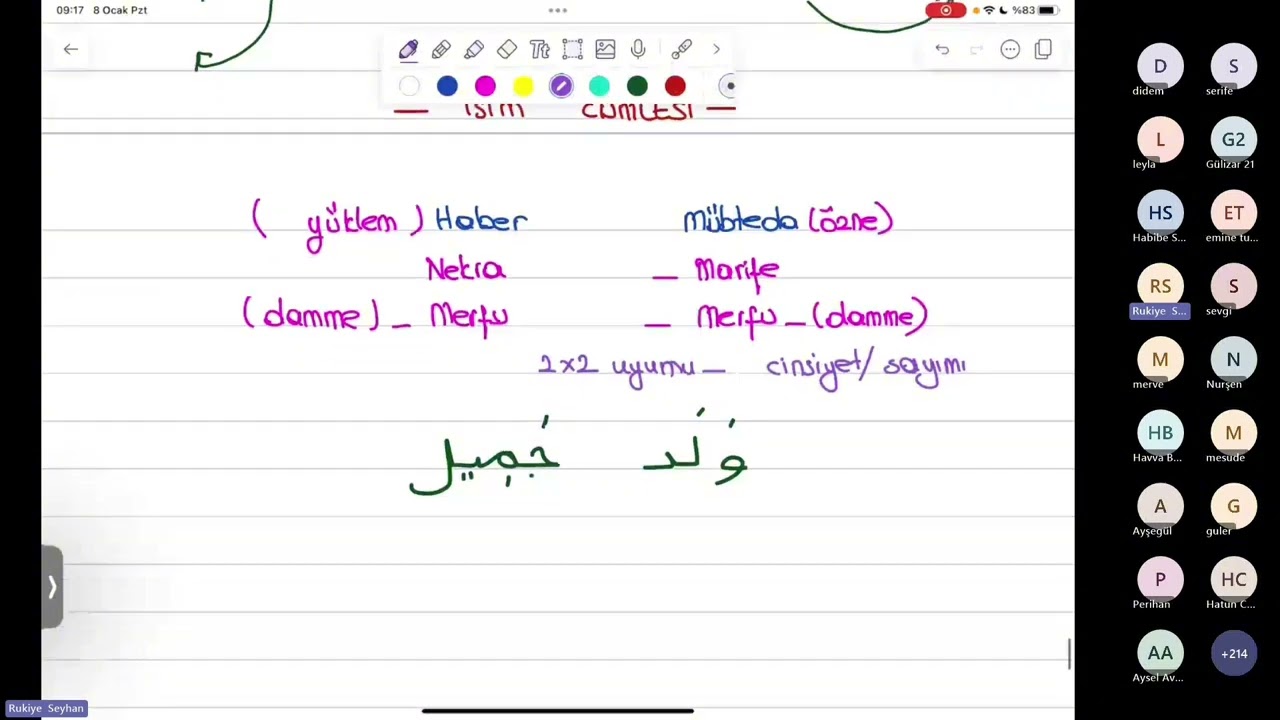 09:17 8 Ocak Pzt
%83
Tt
— İSİM CÜMLESİ —
( yüklem ) Haber Mübteda (özne)
Nekra — Marife
(damme) — Merfu — Merfu — (damme)
2x2 uyumu — cinsiyet / sayımı
وَلَد جَمِيل
D S
didem serife
L G2
leyla Gülizar 21
HS ET
Habibe S... emine tu...
RS S
Rukiye S... sevgi
M N
merve Nurşen
HB M
Havva B... mesude
A G
Ayşegül guler
P HC
Perihan Hatun C...
AA +214
Aysel Av...
Rukiye Seyhan